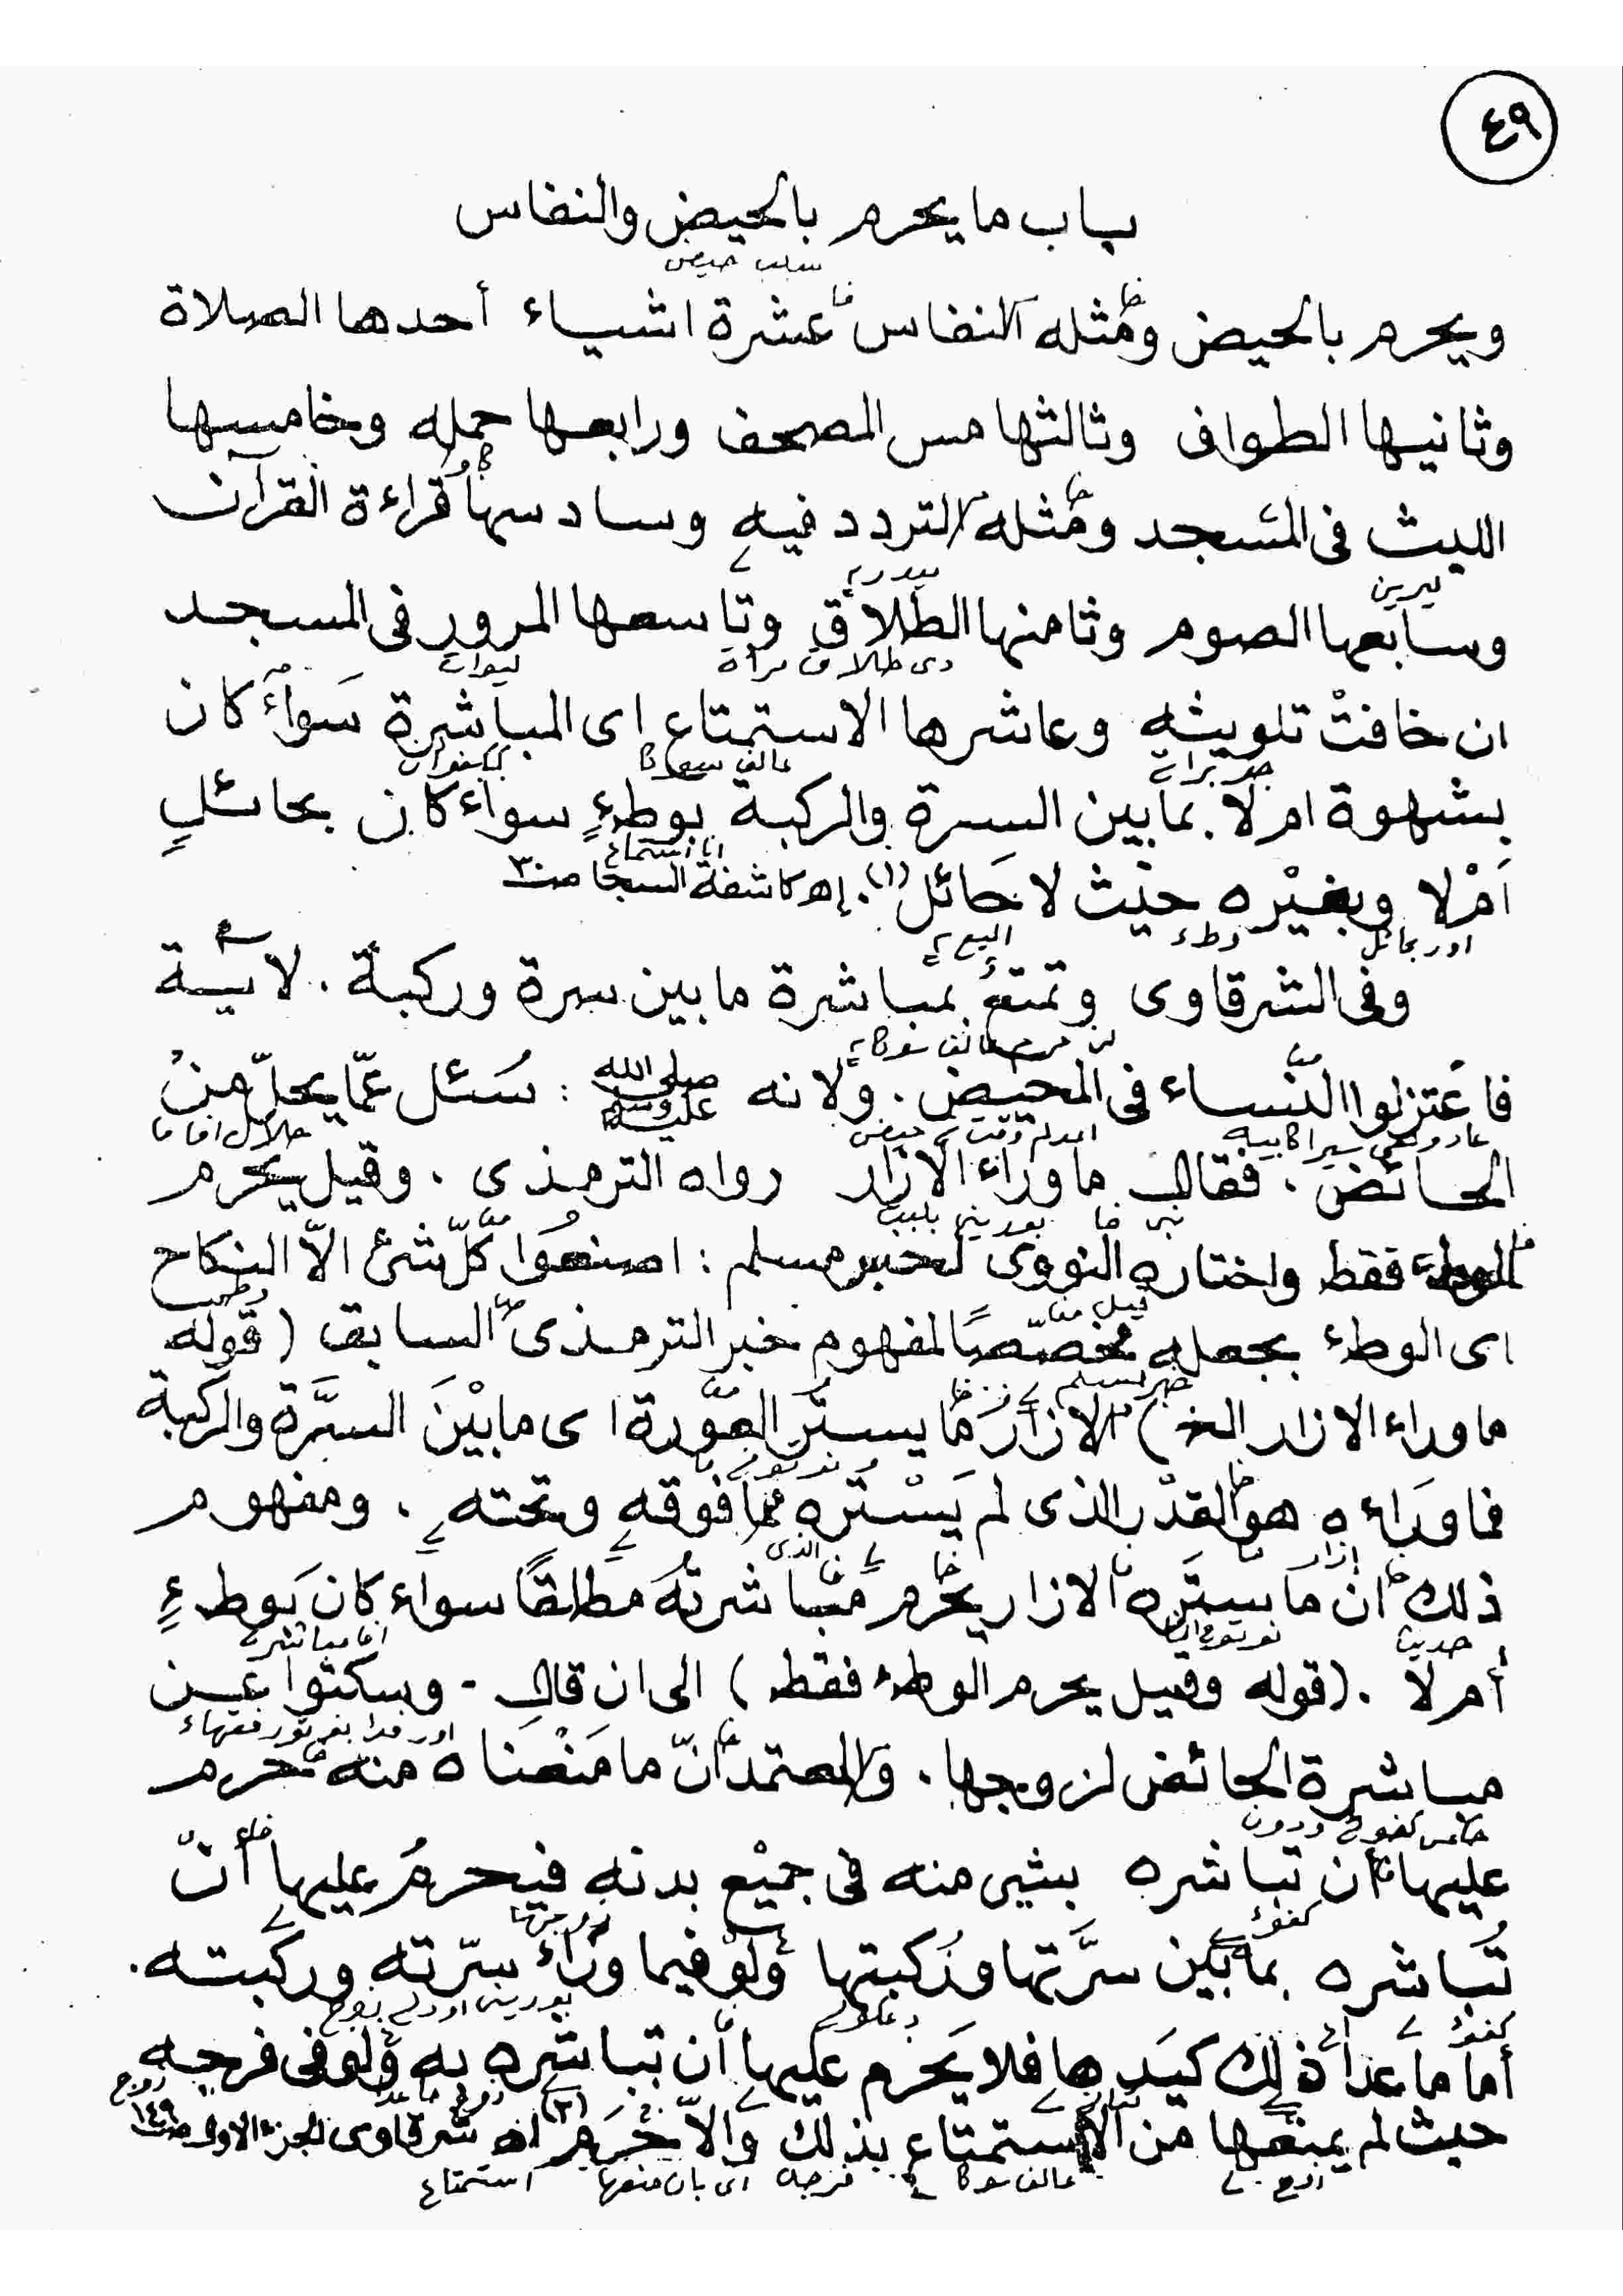 ٤٩
باب ما يحرم بالحيض والنفاس
سلب حيض
ويحرم بالحيض ومثله النفاس عشرة اشياء أحدها الصلاة
وثانيها الطواف وثالثها مس المصحف ورابعها حمله وخامسها
اللبث فى المسجد ومثله التردد فيه وسادسها قراءة القرآن
وسابعها الصوم وثامنها الطلاق وتاسعها المرور فى المسجد
دى طلاق مرأة
ان خافتْ تلويثه وعاشرها الاستمتاع اى المباشرة سَواءٌ كان
بشهوة ام لا بما بين السرة والركبة بوطءٍ سواء كان بحائلٍ
انا استمتاع
اَمْ لا وبغيْره حيْث لا حَائل (١). إه كاشفة السجا صـ ٣٠
وطء
وفى الشرقاوى وتمتعٌ بمباشرة ما بين سرة وركبة . لاية
فاعْتزلوا النّساء فى المحيض . ولانه صلى الله عليه وسلم : سُئل عمّا يحلّ منْ
الحائض ، فقال ما وراء الازار رواه الترمذى . وقيل يحرم
الوطء فقط واختاره النووى لخبر مسلم : اصنعُوا كلّ شئ الاّ النكاح
اى الوطء بجعله مخصّصًا لمفهوم خبر الترمذى السابق (قوله
ما وراء الازار الخ) الازار ما يستر العوْرة اى ما بيْنَ السرَّة والركبة
فماورَاءه هو القدْر الذى لم يَسْتره مما فوقه وتحته . ومفهوم
الذى
ذلك انّ ما يستره الازار يحْرم مُباشرتُهُ مطلقًا سواء كان بَوطءٍ
حديث
أم لا . (قوله وقيل يحرم الوطء فقط) الى ان قال - وسكتوا عن
مباشرة الحائض لزوجها . والمعتمد انّ ما مَنْعنَاه منه حرم
عليها ان تباشره بشئ منه فى جميْع بدنه فيحرمُ عليها أنْ
تُباشره بما بيْن سرَّتها ورُكبتها ولوْ فيما ورَاءَ سرّته وركبته .
أما ما عدا ذلك كيَدها فلا يَحرم عليها أن تباشره به ولو فى فرجه
زوج
حيث لم يمنعها من الاستمتاع بذلك والاّ حَرم (٢) اه شرقاوى الجزء الاول صـ ١٤٩
فرجه اى بان منعها استمتاع